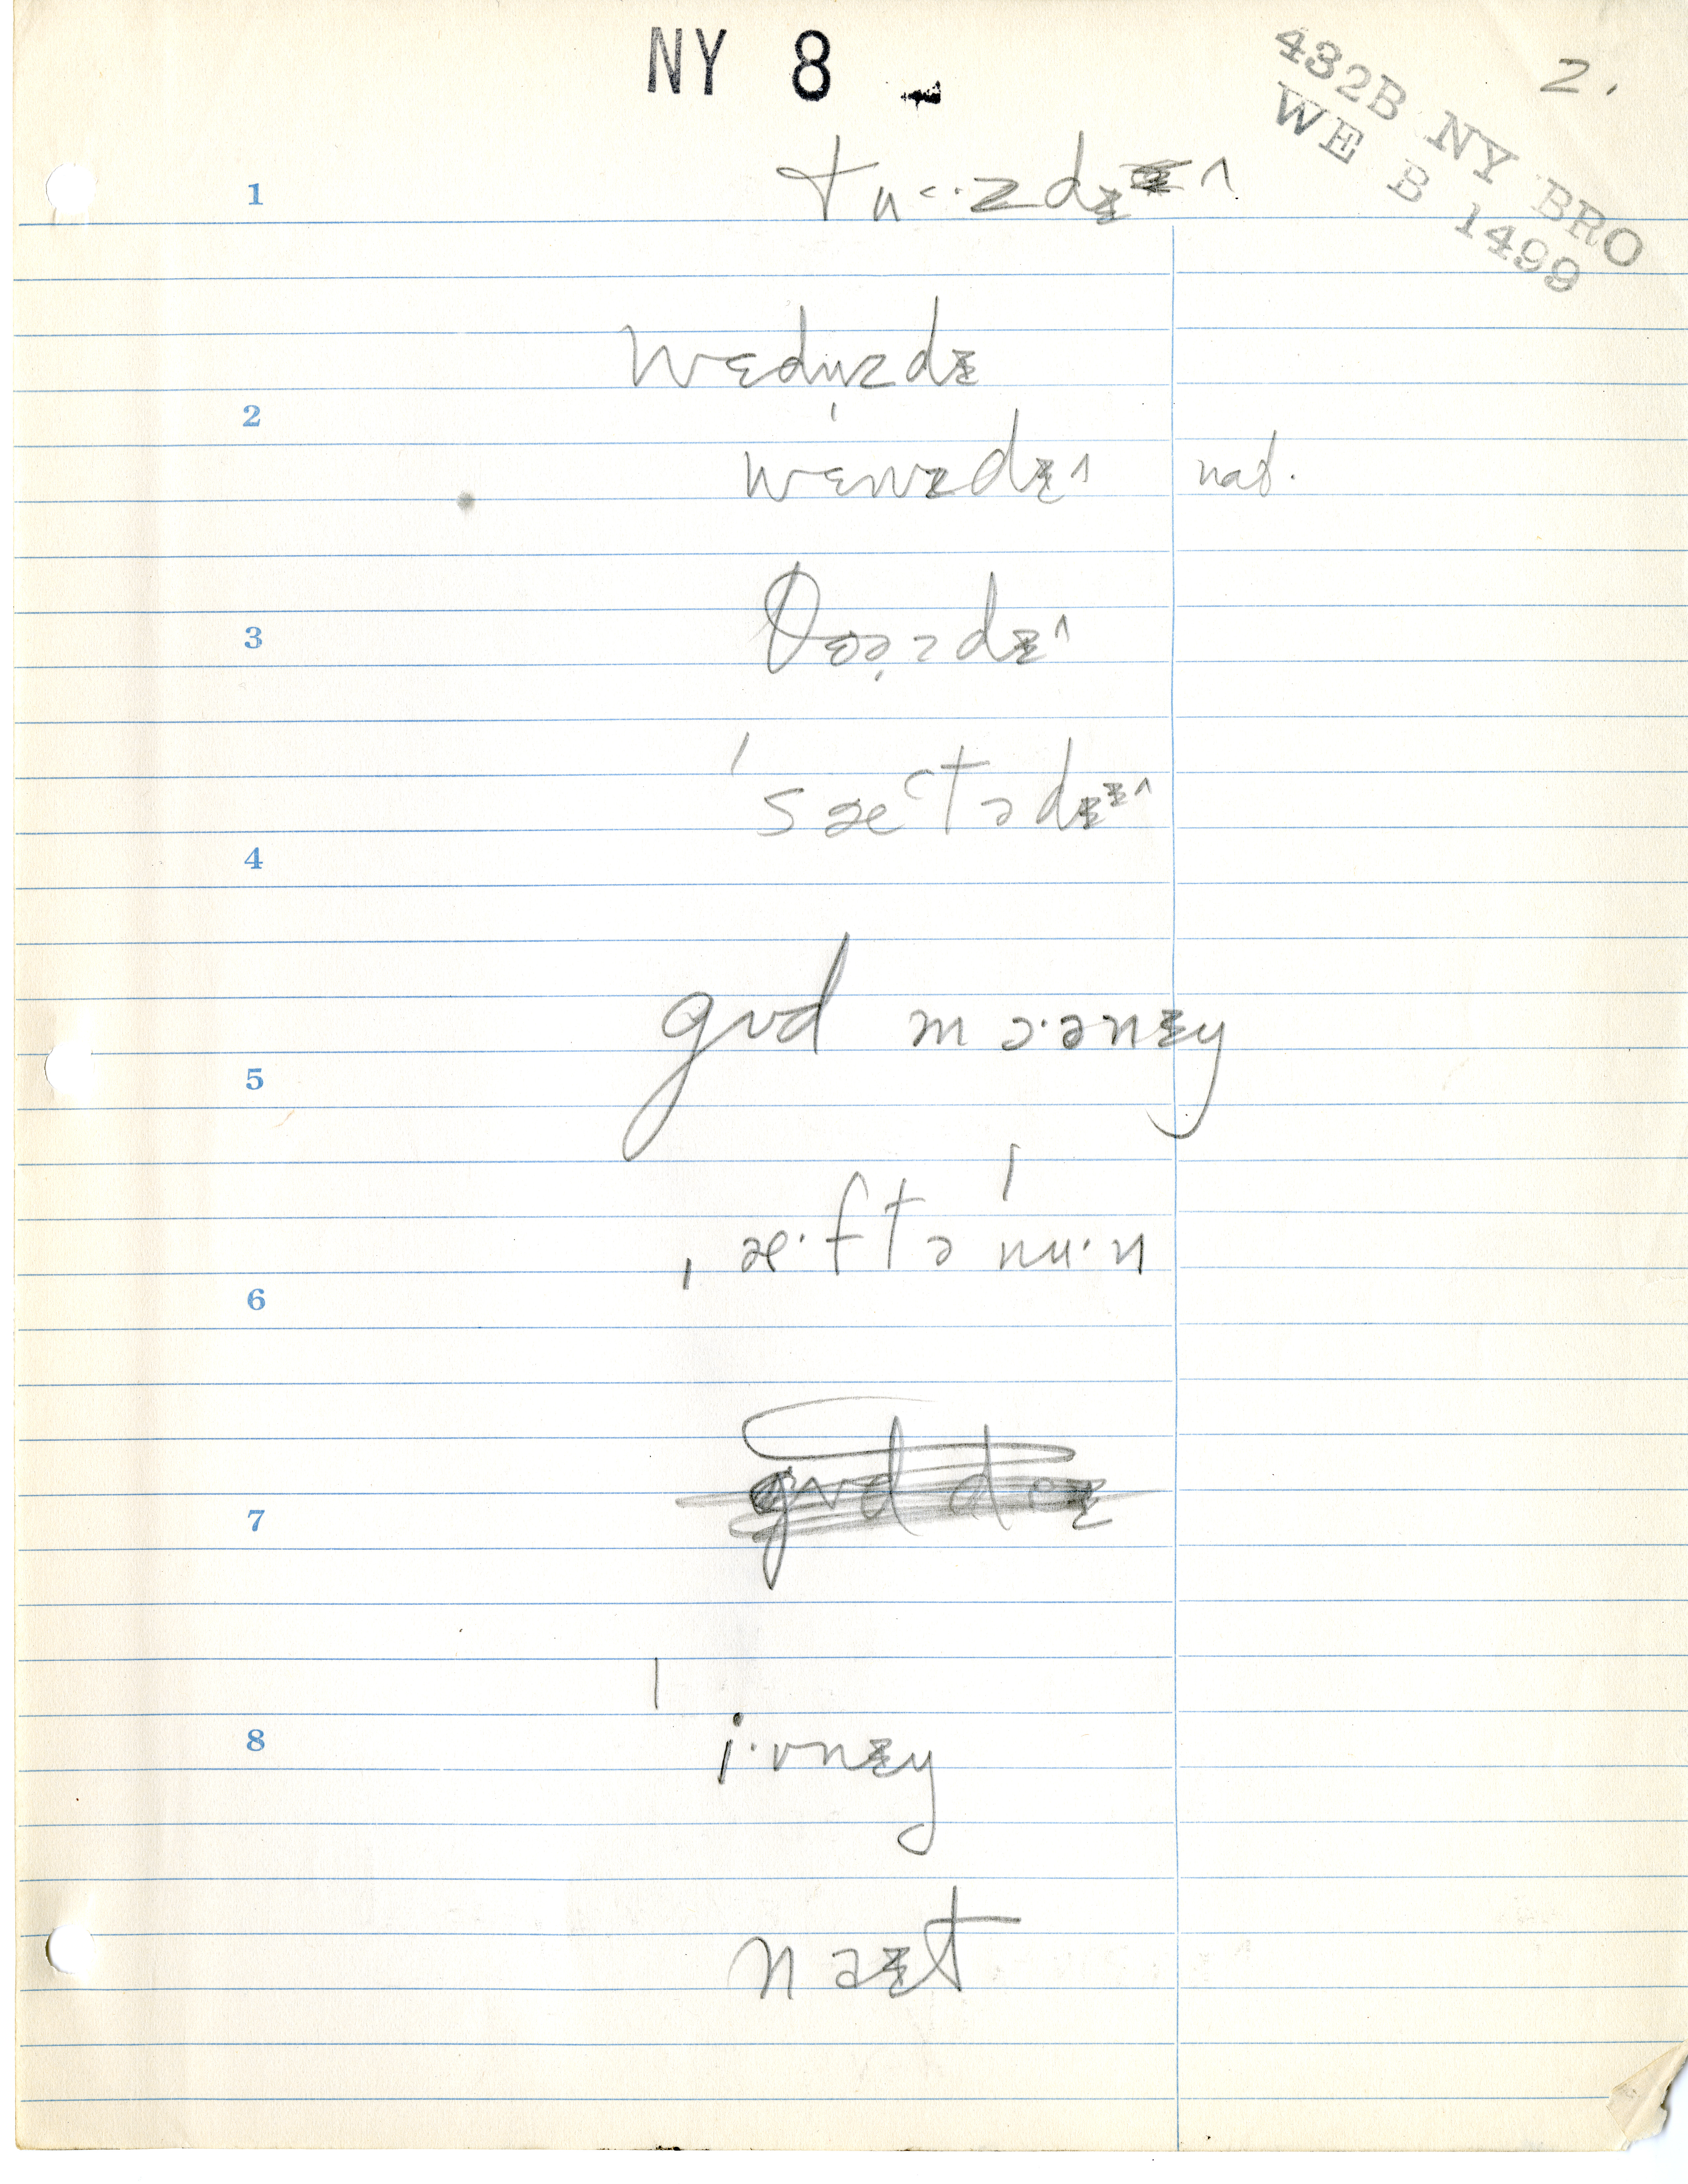 NY 8
2.
432B NY BRO
WE B 1499
1 tu<·zdᵻ^
wɛdn̩zdᵻ
2
wɛnzdᵻ^ nat.
3 θɜə̯zdᵻ^
ˈsæᶜtədᵻᵻ^
4
gʊd mɔ·ənᵻŋ
5
ˌæ·ftəˈnu·n
6
gʊd dɛᵻ
7
8 ˈi·vnᵻŋ
naᵻt